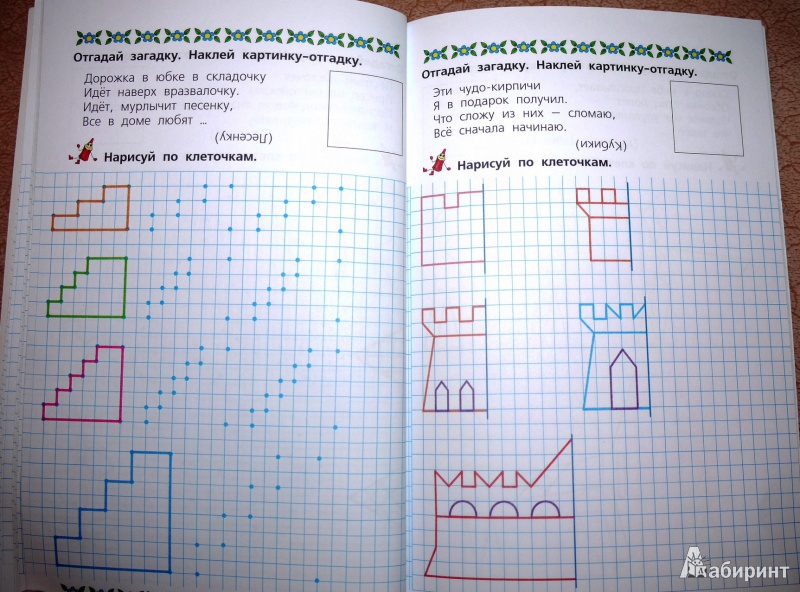 Отгадай загадку. Наклей картинку-отгадку.
Дорожка в юбке в складочку
Идёт наверх вразвалочку.
Идёт, мурлычит песенку,
Все в доме любят ...
(Лесенку)
Нарисуй по клеточкам.
Отгадай загадку. Наклей картинку-отгадку.
Эти чудо-кирпичи
Я в подарок получил.
Что сложу из них — сломаю,
Всё сначала начинаю.
(Кубики)
Нарисуй по клеточкам.
Лабиринт